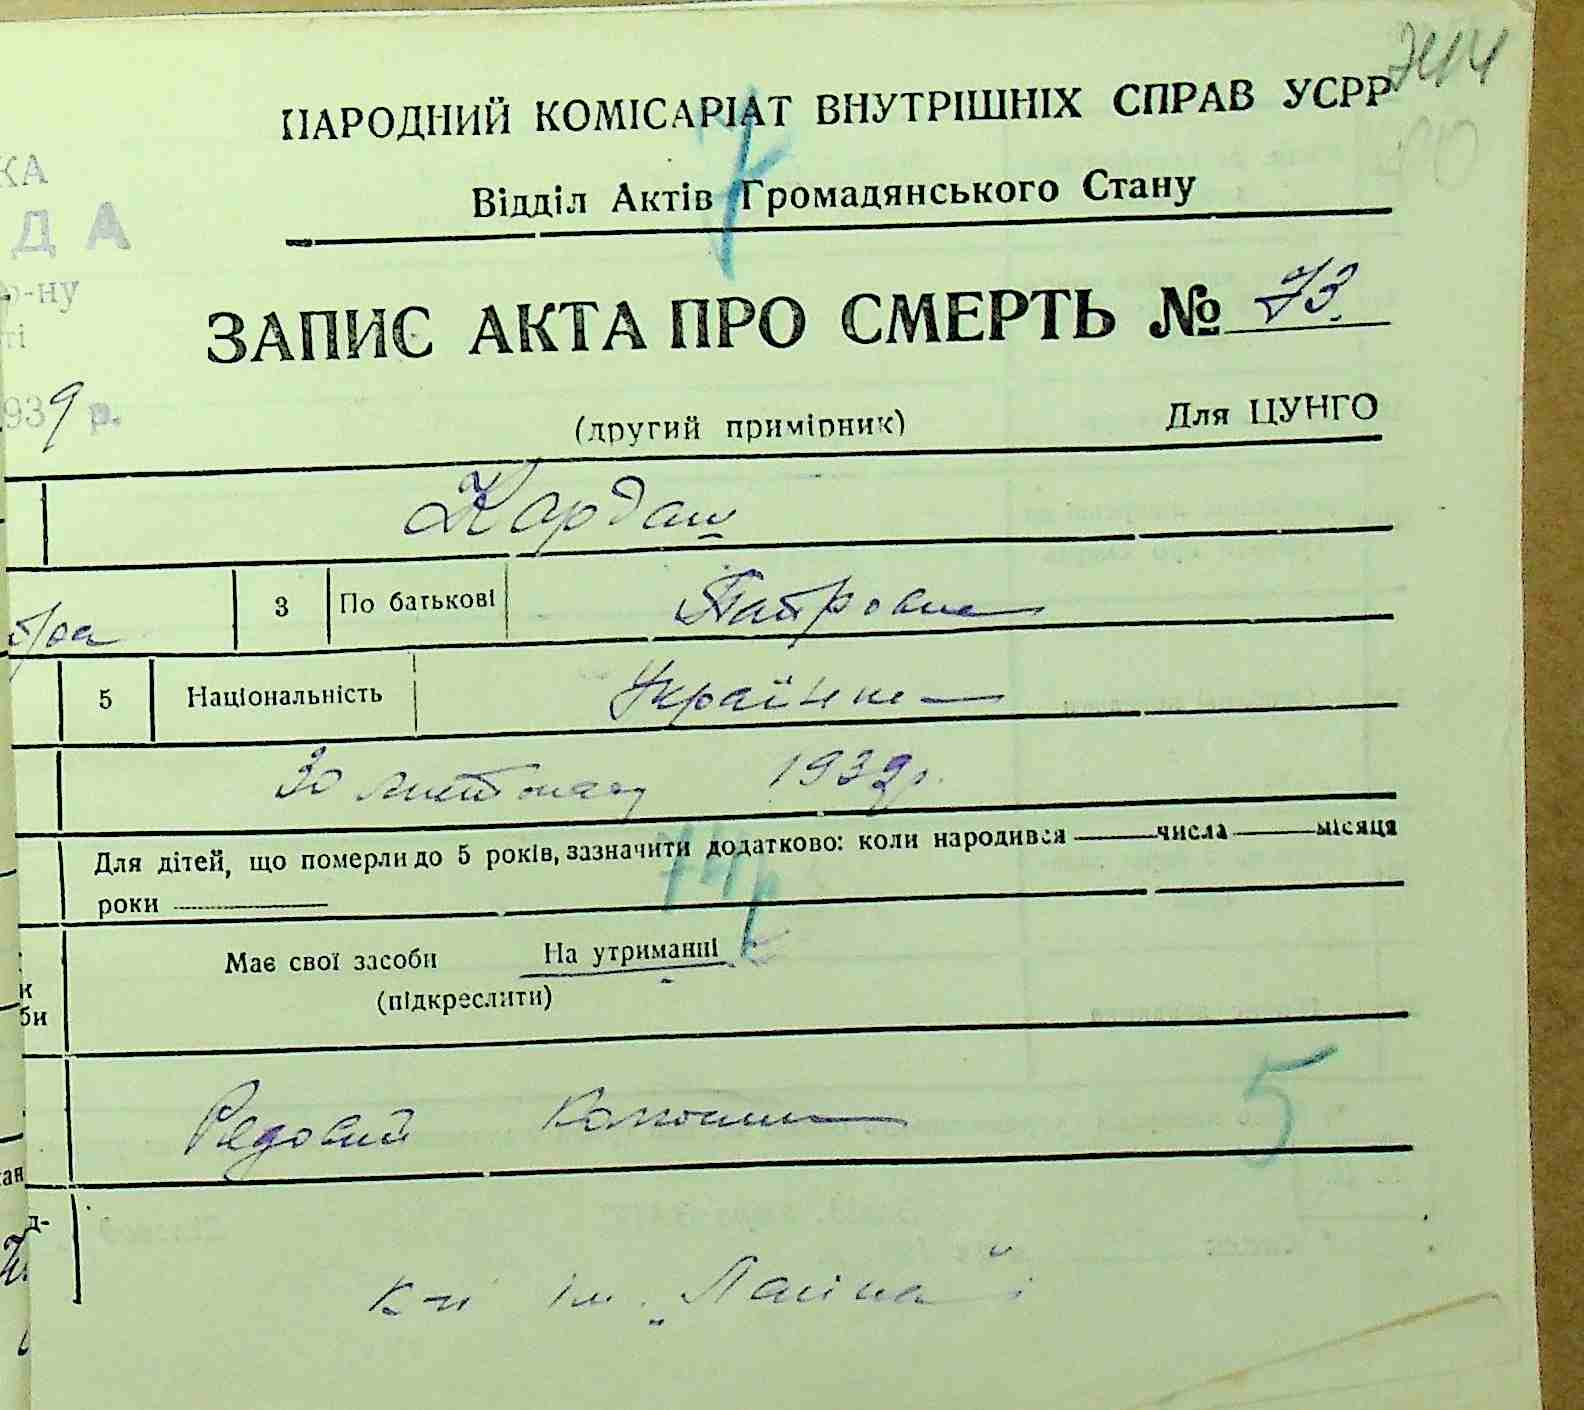 2414
НАРОДНИЙ КОМІСАРІАТ ВНУТРІШНІХ СПРАВ УСРР
Відділ Актів Громадянського Стану
КА
ДА
р-ну
ті
ЗАПИС АКТА ПРО СМЕРТЬ № 73
1939 р.
(другий примірник) Для ЦУНГО
Кардаш
3 По батькові Петровна
5 Національність Українка
30 листопаду 1939 р.
Для дітей, що померли до 5 років, зазначити додатково: коли народився числа місяця
роки
74 р
Має свої засоби На утриманні
(підкреслити)
к
би
5
Рядовий
ан
д-
к-п ім.